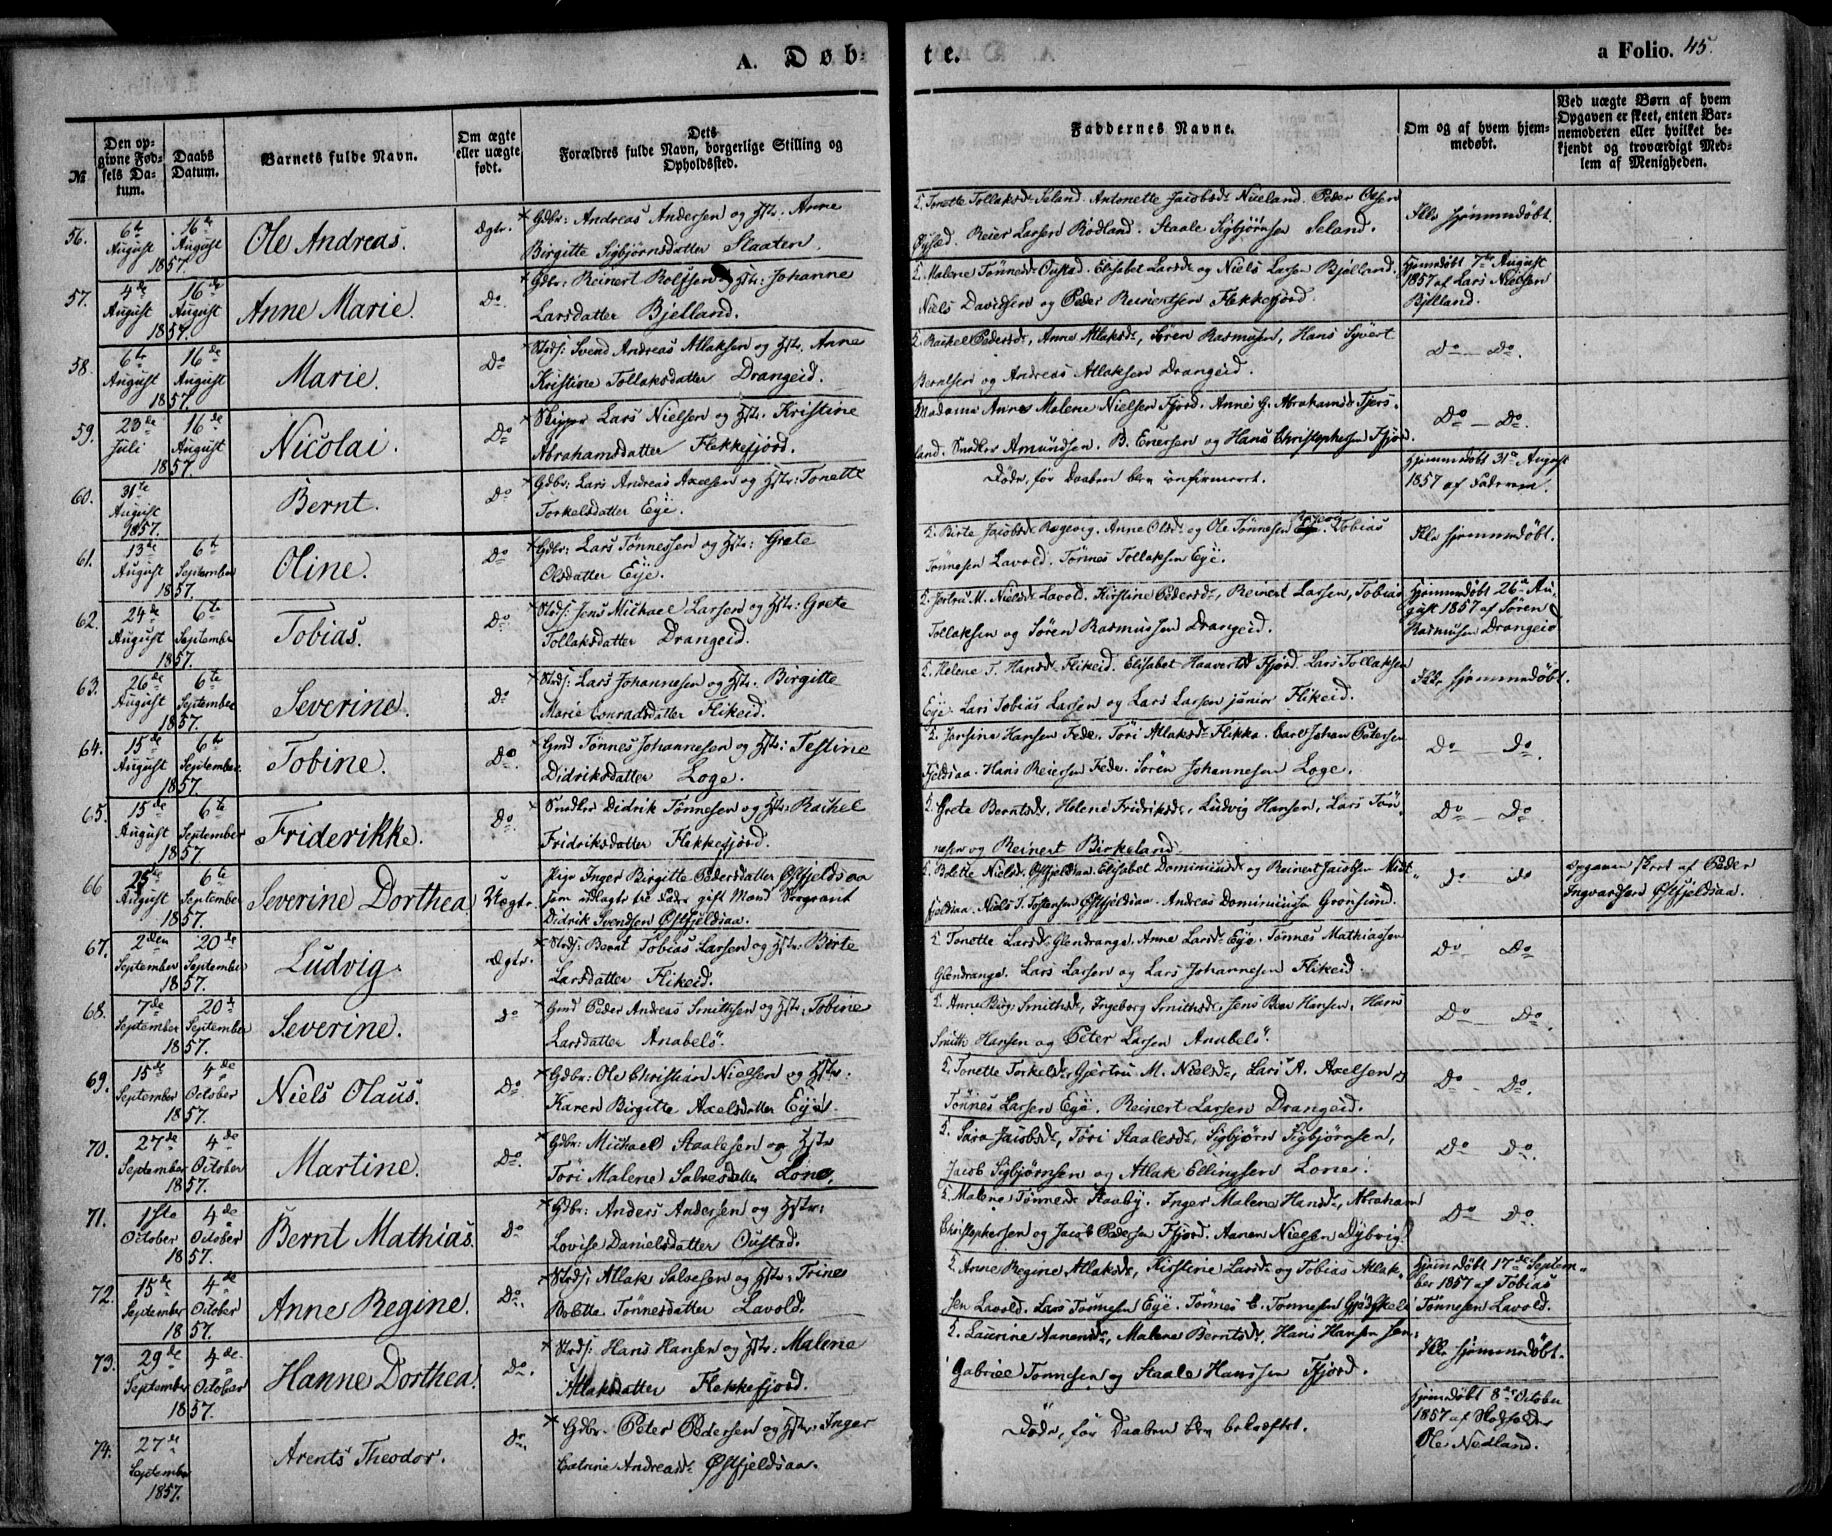 A. Døb-
te.
a Folio. 45.
№
Den opgivne Fødsels Datum.
Daabs Datum.
Barnets fulde Navn.
Om ægte eller uægte født.
Dets Forældres fulde Navn, borgerlige Stilling og Opholdssted.
Faddernes Navne.
Om og af hvem hjemmedøbt.
Ved uægte Børn af hvem Opgaven er skeet, enten Barnemoderen eller hvilket bekjendt og troværdigt Medlem af Menigheden.
56. 6te August 1857. 16de August Ole Andreas. Ægte. Gdbr: Andreas Andersen og Hstr: Anne
Birgitte Sigbjørnsdatter Slaaten.
Tonette Tollaksd. Seland. Antonette Jacobsd. Nueland. Peder Olsen
Øysæd. Reier Larsen Rødland. Staale Sigbjørnsen Seland.
Ikke hjemmedøbt.
57. 4de August 1857. 16de August Anne Marie. Do. Gdbr: Reinert Rolfsen og Hstr: Johanne
Larsdatter Bjelland.
Malene Tønnesd. Oustad. Elisabet Larsd. og Niels Larsen Bjelland.
Niels Davidsen og Peder Reinertsen Flekkefjord.
Hjemdøbt 7de August
1857 af Lars Nielsen
Bjelland.
58. 6te August 1857. 16de August Marie. Do Strds: Svend Andreas Atlaksen og Hstr. Anne
Kristine Tollaksdatter Drangeid.
Rachel Pedersd., Anne Atlaksd., Søren Rasmusen, Hans Syvert
Berntsen og Andreas Atlaksen Drangeid.
Do — Do.
59. 23de Juli 1857. 16de August Nicolai. Do Skipper Lars Nielsen og Hstr. Kristine
Abrahamsdatter Flekkefjord.
Madame Anne Malene Nielsen Fjord. Anne G. Abrahamsd. Tjers-
land. Snedker Amundsen. B. Enersen og Hans Christophersen Fjord.
Do — Do.
60. 31te August 1857. Bernt. Do Gdbr: Lars Andreas Axelsen og Hstr: Tonette
Torkelsdatter Eye.
Døde, før Daaben blev confirmeret.
Hjemmedøbt 31te August
1857 af Faderen.
61. 13de August 1857. 6te September Oline. Do Gdbr: Lars Tønnessen og Hstr: Grete
Olsdatter Eye.
Birte Jacobsd. Røgeorg. Anne Olsd. og Ole Tønnesen Tobias
Tønnesen Lavold. Tønnes Tollaksen Eye.
Ikke hjemmedøbt.
62. 24de August 1857. 6te September Tobias. Do. Strds: Jens Michael Larsen og Hstr: Grete
Tollaksdatter Drangeid.
Jertru M. Nielsd. Lavold. Kirstine Pedersd., Reinert Larsen, Tobias
Tollaksen og Søren Rasmussen Drangeid.
Hjemmedøbt 26de Au-
gust 1857 af Søren
Rasmusen Drangeid
63. 26de August 1857. 6te September Severine. Do Strds: Lars Johannesen og Hstr. Birgitte
Marie Conradsdatter Flikeid.
Helene T. Hansd. Flikeid. Elisabet Haavertsd. Fjord. Lars Tollaksen
Eye. Lars Tobias Larsen og Lars Larsen junior Flikeid.
Ikke hjemmedøbt.
64. 15de August 1857. 6te September Tobine. Do. Gmd Tønnes Johannesen og Hstr: Testine
Didriksdatter Loge.
Jansine Hansen Fede. Tøri Atlaksd. Flikka. Carl Johan Petersen
Fjeldsaa. Hans Reiersen Fede. Søren Johannesen Loge.
Do — Do.
65. 15de August 1857 6te September Friderikke. Do. Snedker Didrik Tønnesen og Hstr: Rachel
Fridriksdatter Flekkefjord.
Grete Berntsd., Helene Fridriksd., Ludvig Hansen, Lars Tøn-
nesen og Reinert Birkeland.
Do — Do.
66 25de August 1857. 6te September Severine Dorthea. Uægte. Pige Inger Birgitte Pedersdatter Østfjeldsaa
som udlagte til Fader gift Mand Sergeant
Didrik Svendsen Østfjeldsaa.
Bolette Nielsd. Østfjeldsaa. Elisabet Dominicusd. og Reinert Jacobsen Midt-
fjeldsaa. Niels T. Tostensen Østfjeldsaa. Andreas Dominicusen Grønsund.
Do Do
Opgaven skeet af Peder
Ingvardsen Østfjeldsaa.
67. 2den September 1857. 20de September Ludvig. Ægte. Strds: Bernt Tobias Larsen og Hstr: Birte
Larsdatter Flikeid.
Tonette Larsd. Glendrange. Anne Larsd. Eye. Tønnes Mathiassen
Glendrange. Lars Larsen og Lars Johannesen Flikeid.
Do — Do.
68. 7de September 1857. 20de September Severine. Do Gmd Peder Andreas Smithsen og Hstr: Tobine
Larsdatter Anabelø.
Anne Birg: Smithsd., Ingeborg Smithsd., Jens Beer Hansen, Hans
Smith Hansen og Peter Larsen Anabelø.
Do — Do.
69. 15de September 1857. 4de October Niels Olaus. Do. Gdbr: Ole Christian Nielsen og Hstr:
Karen Birgitte Axelsdatter Eye.
Tonette Torkelsd., Gjertru M. Nielsd., Lars A. Axelsen,
Tønnes Larsen Eye. Reinert Larsen Drangeid.
Do — Do.
70. 27de September 1857. 4de October Martine. Do. Gdbr: Michael Staalesen og Hstr
Tøri Malene Salvesdatter Lone.
Sara Jacobsd., Tøri Staalesd., Sigbjørn Sigbjørnsen,
Jacob Sigbjørnsen og Atlak Ellingsen Lone.
Do Do.
71. 1ste October 1857. 4de October Bernt Mathias. Do Gdbr: Anders Andersen og Hstr:
Lovise Danielsdatter Oustad.
Malene Tønnesd. Staaby. Inger Malene Hansd., Abraham
Christophersen og Jacob Pedersen Fjord. Aanen Nielsen Dybvig.
Do Do.
72. 15de September 1857. 4de October Anne Regine. Do. Strds: Atlak Salvesen og Hstr: Trine
Bolette Tønnesdatter Lavold.
Anne Regine Atlaksd., Kirstine Larsd. og Tobias Atlak-
sen Lavold. Lars Tønnesen Eye. Tønnes C. Tønnesen Gjedskeli
Hjemdøbt 17de Septem-
ber 1857 af Tobias
Tønnesen Lavold.
73. 29de September 1857. 4de October Hanne Dorthea. Do. Strds: Hans Hansen og Hstr: Malene
Atlaksdatter Flekkefjord.
Laurine Aanensd., Malene Berntsd. Hans Hansen sen:
Gabriel Tønnesen og Staale Hanssen Fjord.
Ikke hjemmedøbt.
74. 27de September 1857. Arents Theodor. Do. Gdbr. Peter Pedersen og Hstr: Inger
Catrine Andreasd. Østfjeldsaa.
Døde, før Daaben blev bekræftet.
Hjemdøbt 8de October
1857 af Skoleholder
Ole Nedland.